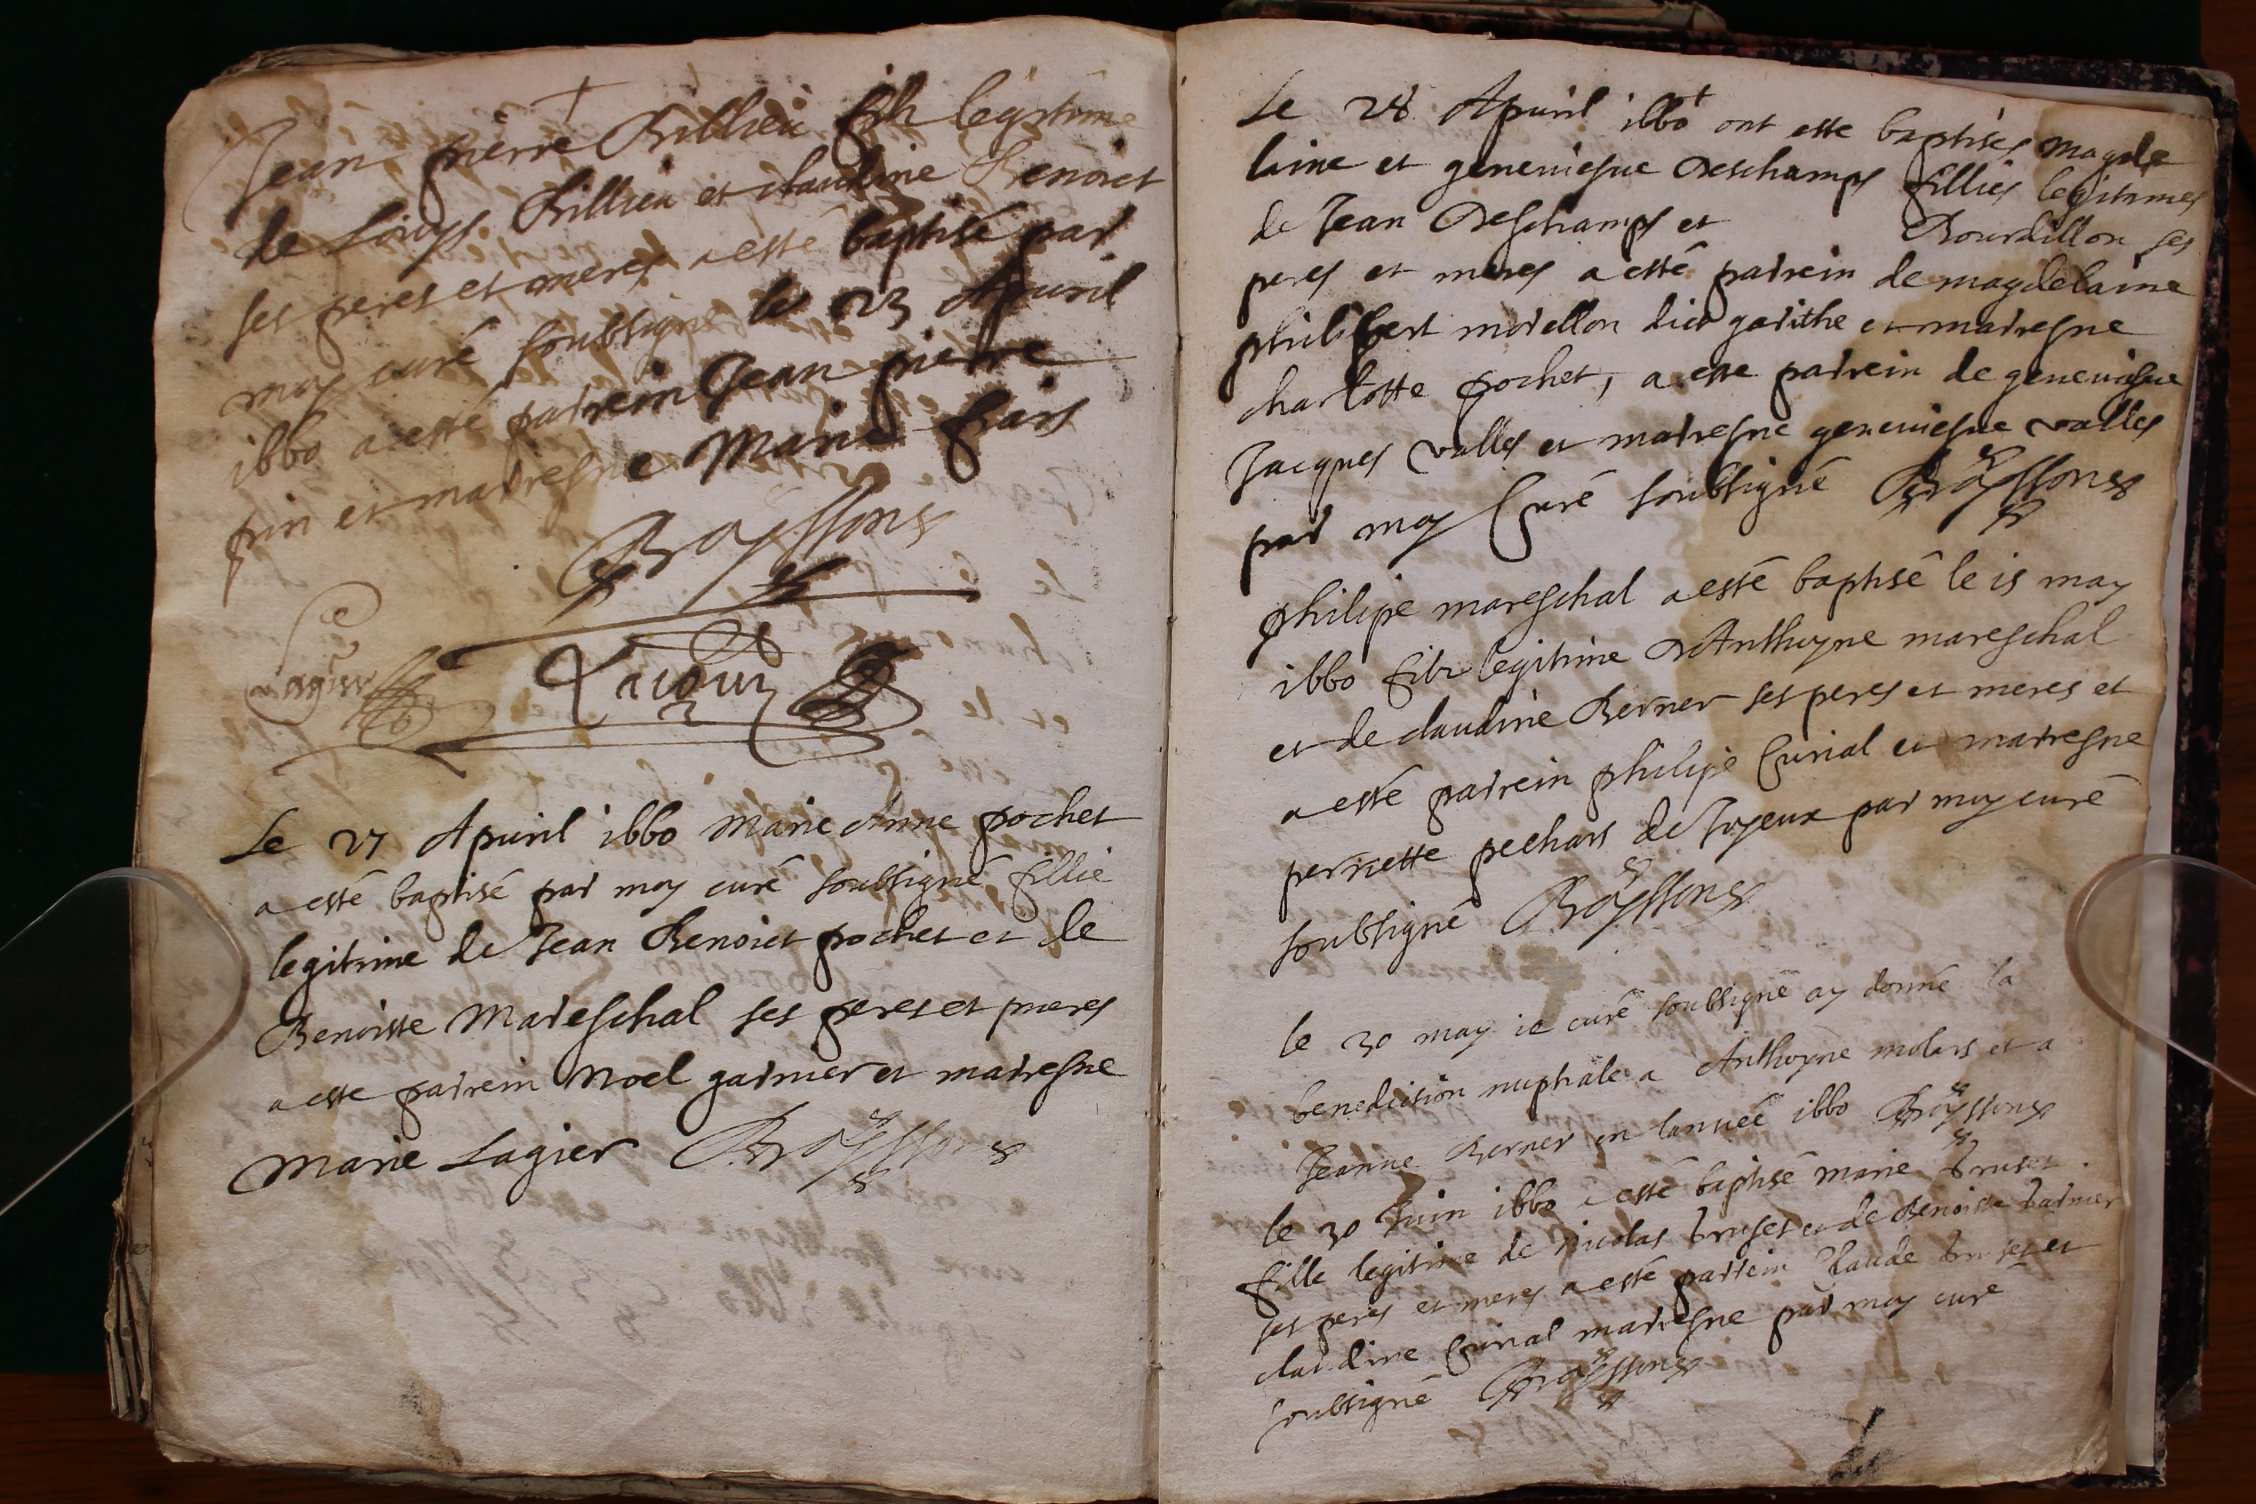 Jean pierre Billieu filz legitime
de Louys Billieu et claudine Benoict
ses peres et meres a esté baptisé par
moy curé soubsigné le 23 Apuril
1660 a esté parrein Jean pierre
pin et marresne Marie frais
Boyssons
Lagier
Lacour
Le 27 Apuril 1660 Marie Anne pochet
a esté baptisé par moy curé soubsigné fillie
legitime de Jean Benoict pochet et de
Benoiste Mareschal ses peres et meres
a este parrein Noel garnier et marresne
Marie Lagier Boyssons
Le 28 Apuril 1660 ont este baptises magde
laine et geneuiesue Deschamps fillies legitimes
de Jean Deschamps et Bourdillon ses
peres et meres a esté parrein de magdelaine
philibert morellon dict garithe et marresne
charlotte pochet, a este parrein de geneuiesue
Jacques valles et marresne geneuiesue valles
par moy Curé soubsigné Boyssons
philipe mareschal a esté baptisé le 15 may
1660 filz legitime d'Anthoyne mareschal
et de claudine Berner ses peres et meres et
a esté parrein philipe Curial et marresne
pernette pechars de Joyeux par moy curé
soubsigné Boyssons
le 30 may ie curé soubsigné ay donné la
benediction nuptiale a Anthoyne molars et a
Jeanne Berner en lannéé 1660 Boyssons
le 30 Juin 1660 a esté baptisé marie bruset
fille legitime de nicolas bruset et de Benoiste barnier
ses peres et meres a esté parrein Claude bruset et
claudine Curial marresne par moy curé
soubsigné Boyssons